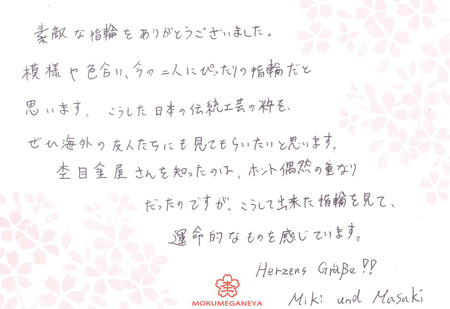 素敵な指輪をありがとうございました。
模様や色合い、今の二人にぴったりの指輪だと
思います。こうした日本の伝統工芸の粋を、
ぜひ海外の友人たちにも見てもらいたいと思います。
杢目金屋さんを知ったのは、ホント偶然の重なり
だったのですが、こうして出来た指輪を見て、
運命的なものを感じています。
Herzens Grüße!!
MOKUMEGANEYA
Miki und Masaki